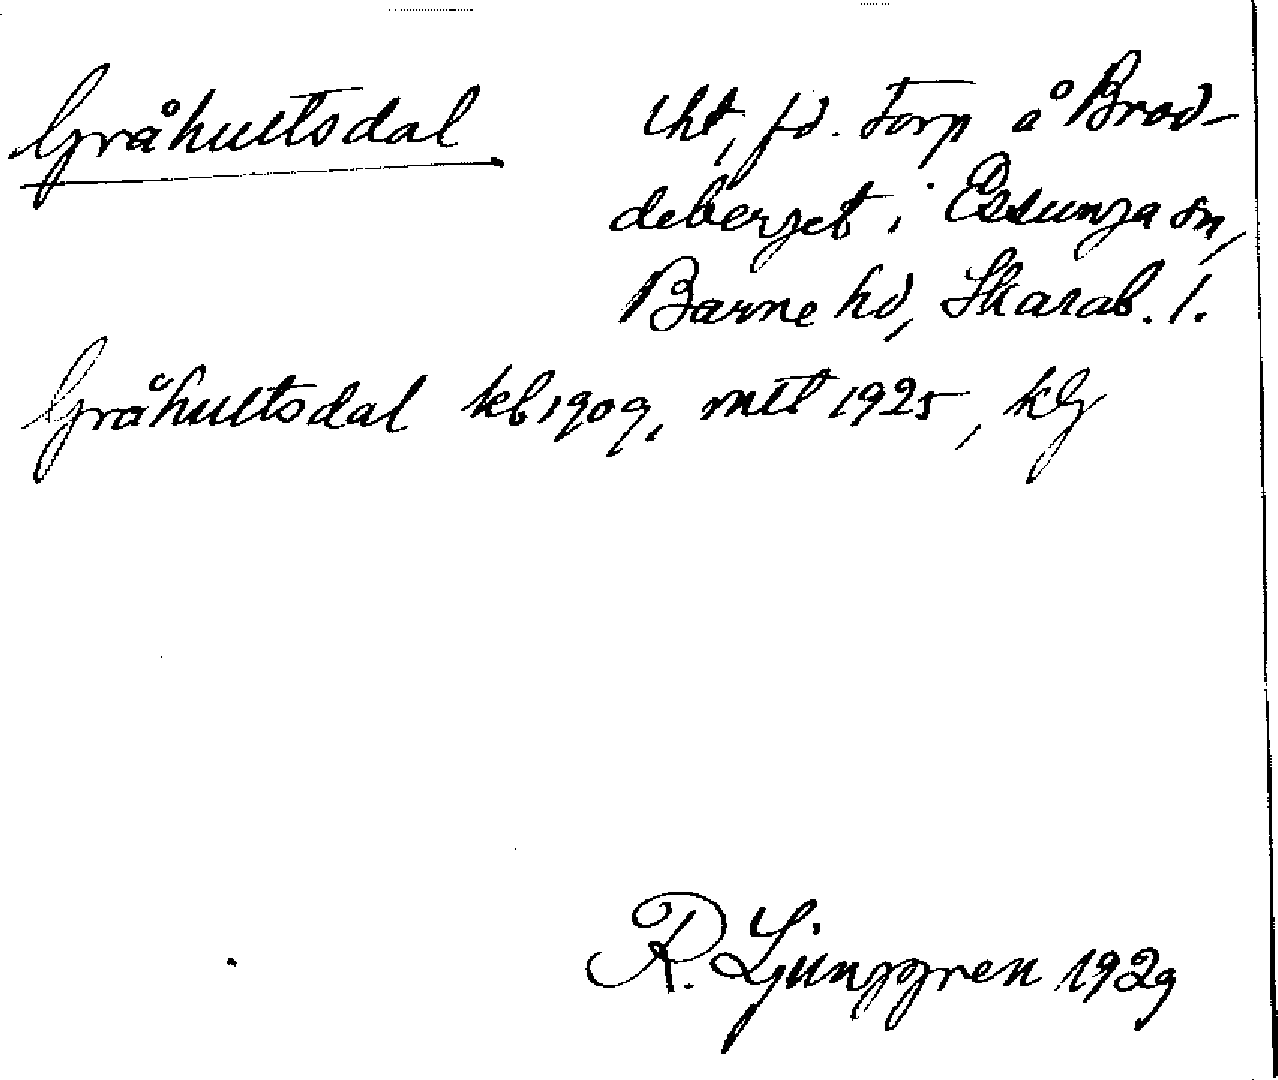 Gråhultsdal
lht, fd. Torp å Brod-
deberget i Essunga sn,
Barne hd, Skarab. l.
Gråhultsdal kb 1909, mtl 1925, kG
R. Ljunggren 1929